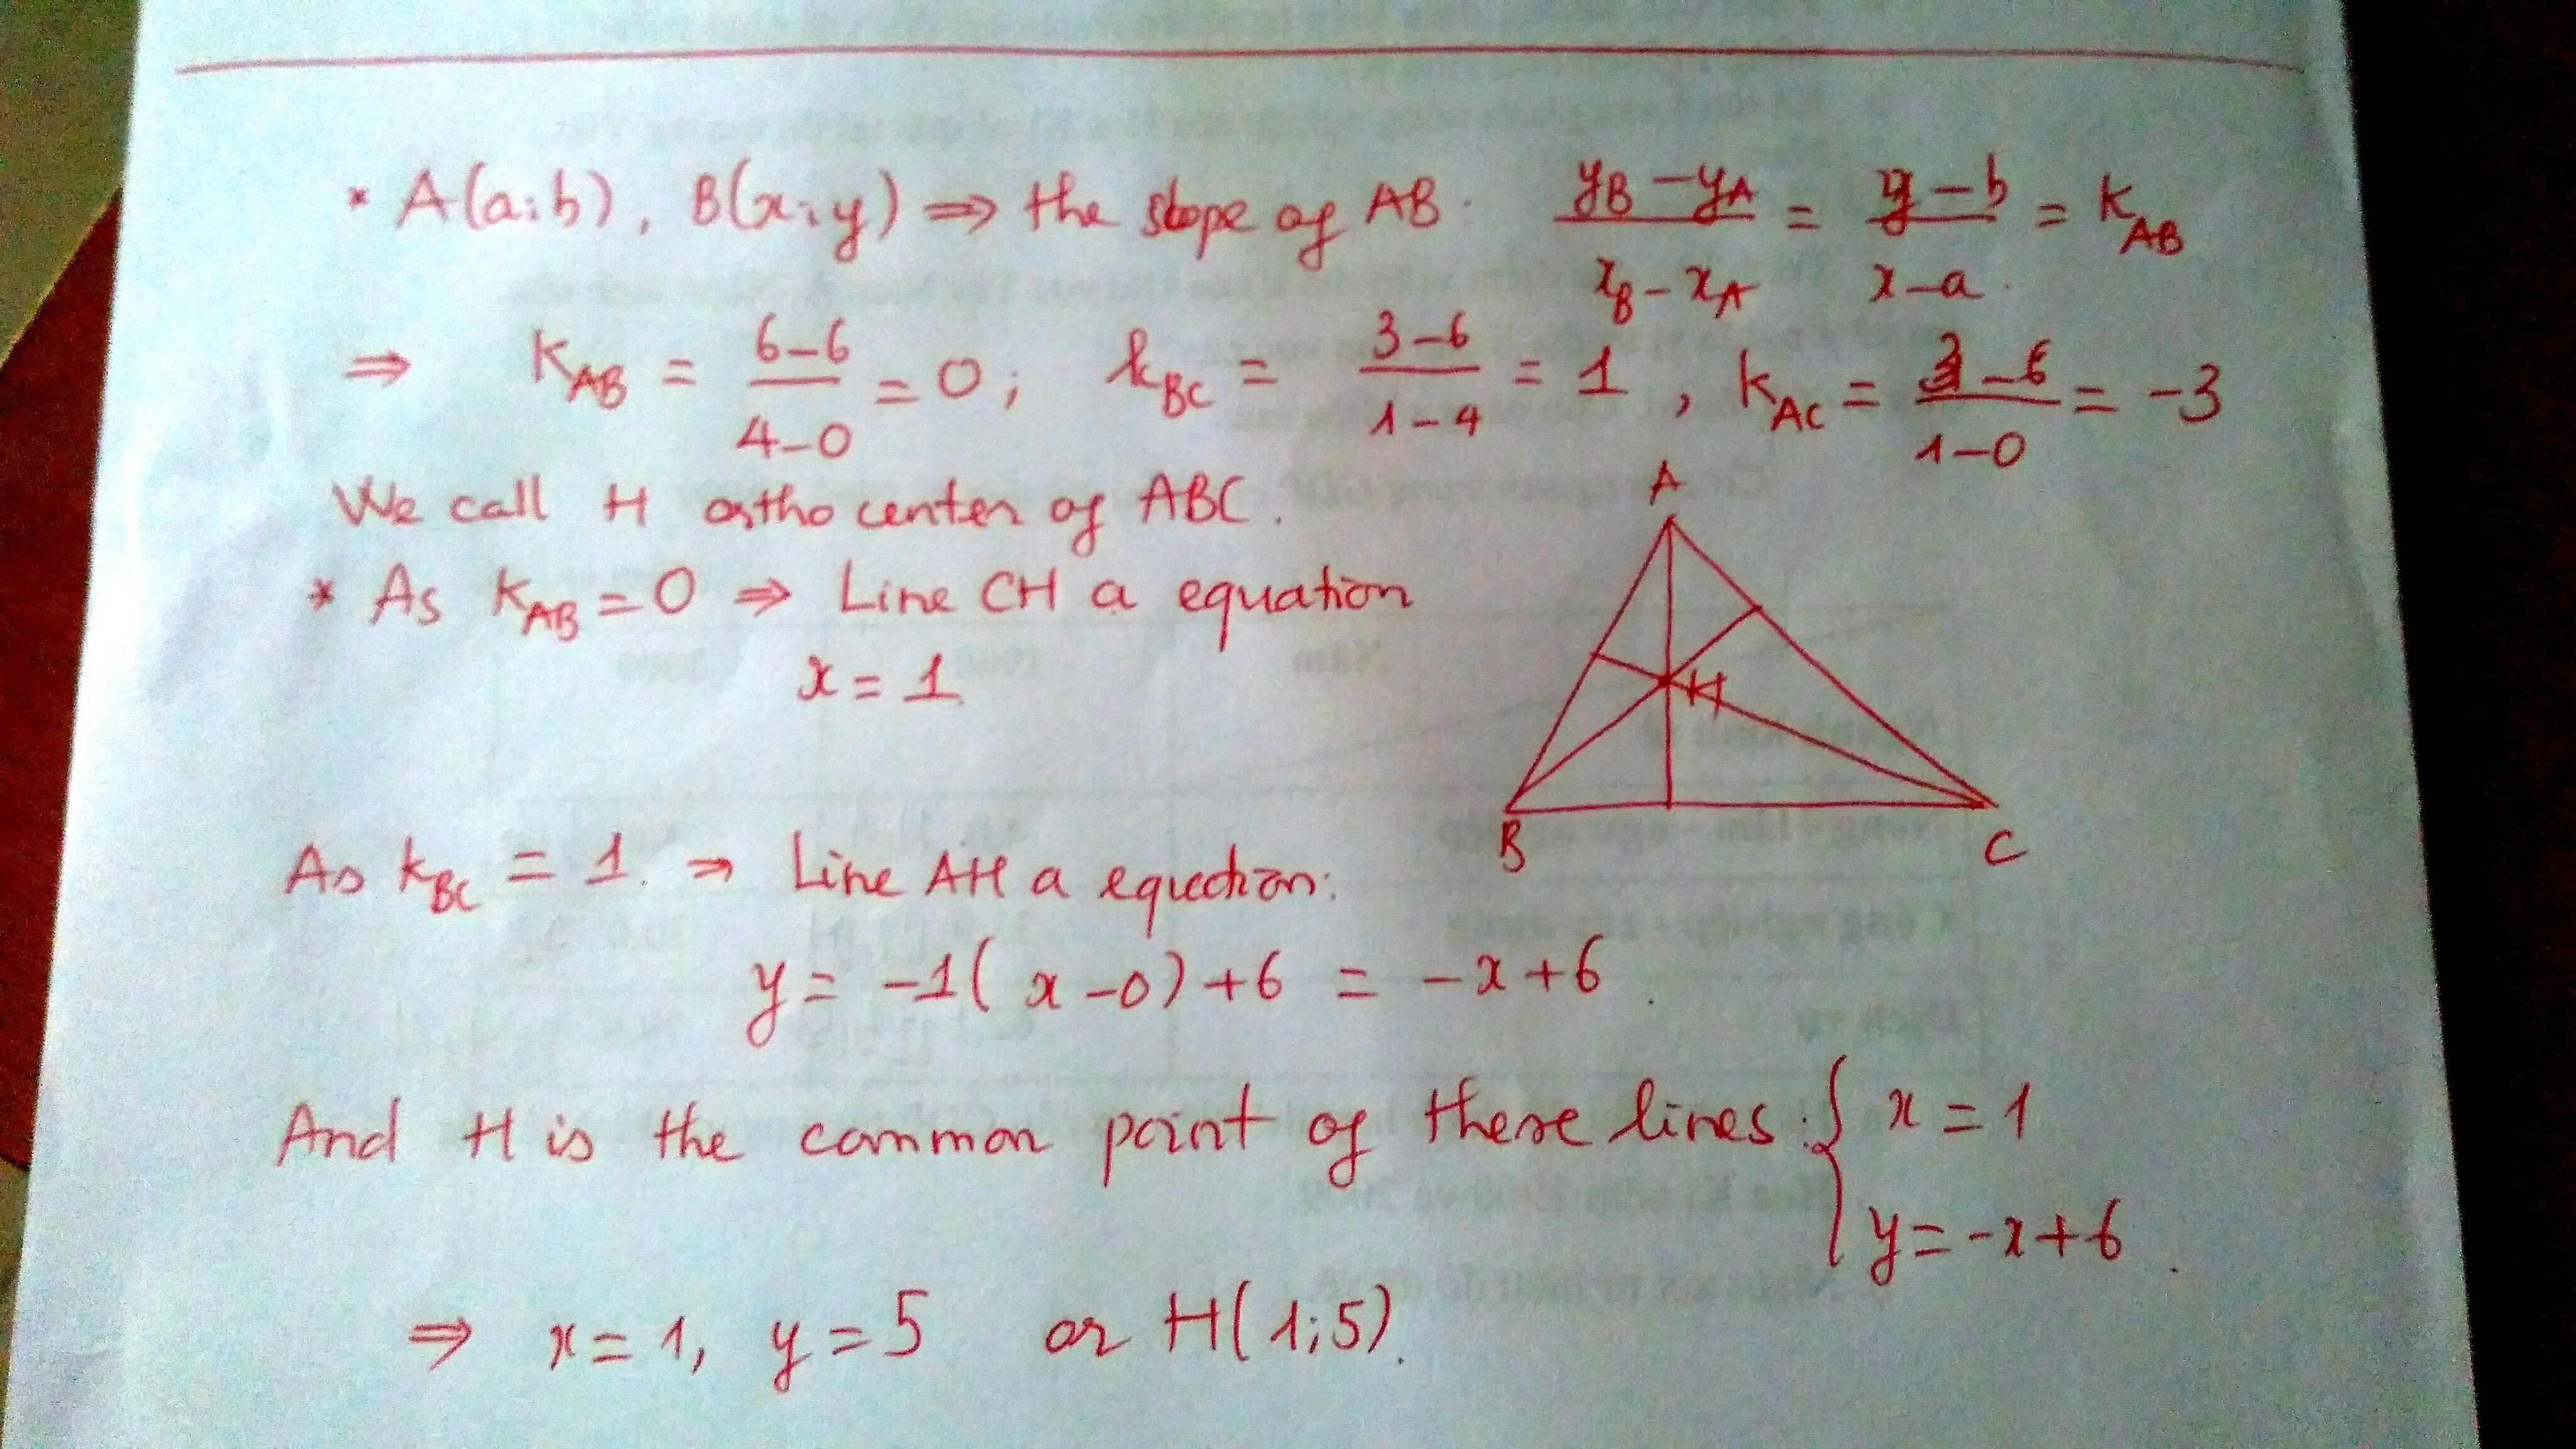 * A(a;b), B(x;y) ⇒ the slope of AB: (y_B − y_A)/(x_B − x_A) = (y − b)/(x − a) = K_AB
⇒ K_AB = (6−6)/(4−0) = 0; k_BC = (3−6)/(1−4) = 1, K_AC = (3−6)/(1−0) = −3
We call H ortho center of ABC.
* As K_AB = 0 ⇒ Line CH a equation
x = 1
A
H
B
C
As K_BC = 1. ⇒ Line AH a equection:
y = −1( x −0) +6 = −x +6.
And H is the common point of these lines: { x = 1
y = −x+6.
⇒ x = 1, y = 5 or H(1;5).